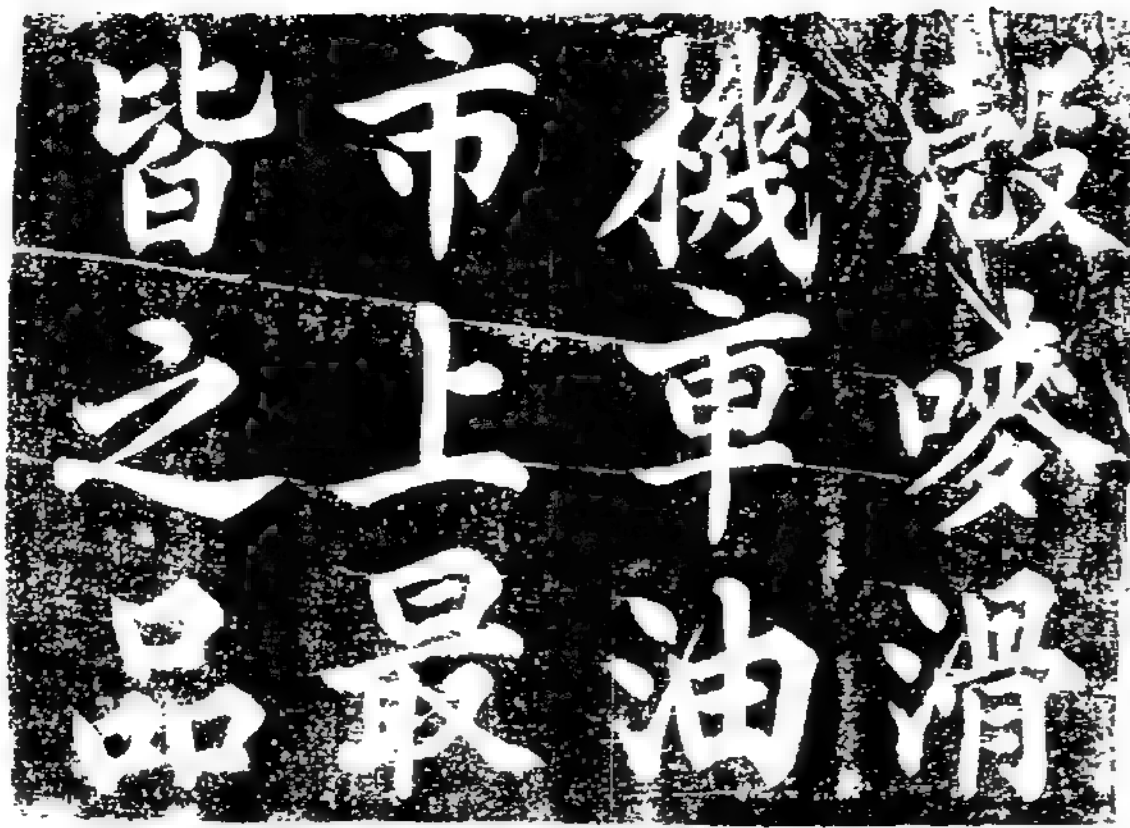 殼嘜滑
機車油
市上最
皆之品